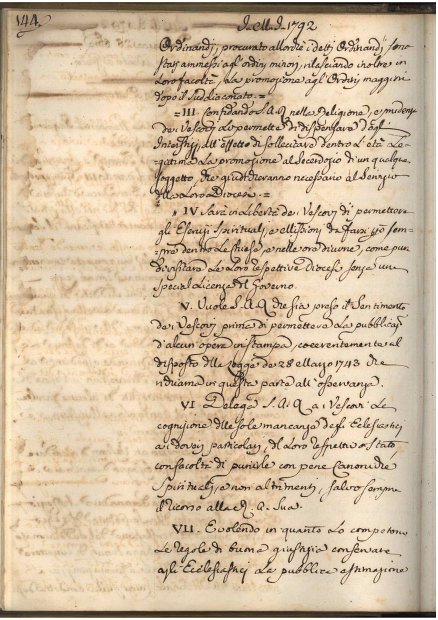 144.
1792
Ordinandj, procurato allorche i detti Ordinandj sono
stati ammessi agl'ordini minori, rilasciando inoltre in
Loro facoltà, La promozione agl'Ordini maggiori
dopo il Suddiaconato. =
= III. Confidando S. A. R. nella Religione, e prudenza
de' Vescovj Le permette di dispensare dagl'
Interstizj, all'effetto di sollecitare dentro l'età Le-
gittima La promozione al Sacerdozio d'un qualque
soggetto, che giudicheranno necessario al Servizio
della Loro Diocesi. =
IV Sarà in Libertà de' Vescovj di permettere
gli Esercizj Spirituali, e Missioni da farsi però sem-
pre dentro Le chiese, e nelle ore diurne, come pure
di visitare Le Loro respettive Diocesi senza una
special Licenza del Governo.
V. Vuole S. A. R. che sia preso il Sentimento
de' Vescovj prima di permettere La pubblicaz.
d'alcun'opera in stampa, coerentemente al
disposto della Legge de' 28 Marzo 1743 che
richiama in questa parte all'osservanza.
VI Delega S. A. R. a i Vescovi Le
cognizione delle sole mancanze degli Eclesiastici
a i doveri particolari, del Loro respettivo Stato,
con facoltà di punirle con pene Canoniche
Spirituali, e non altrimenti, salvo sempre
il ricorso alla R. A. Sua.
VII. E volendo in quanto Lo comportano
Le regole di buona giustizia conservare
agli Ecclesiastici La pubblica estimazione